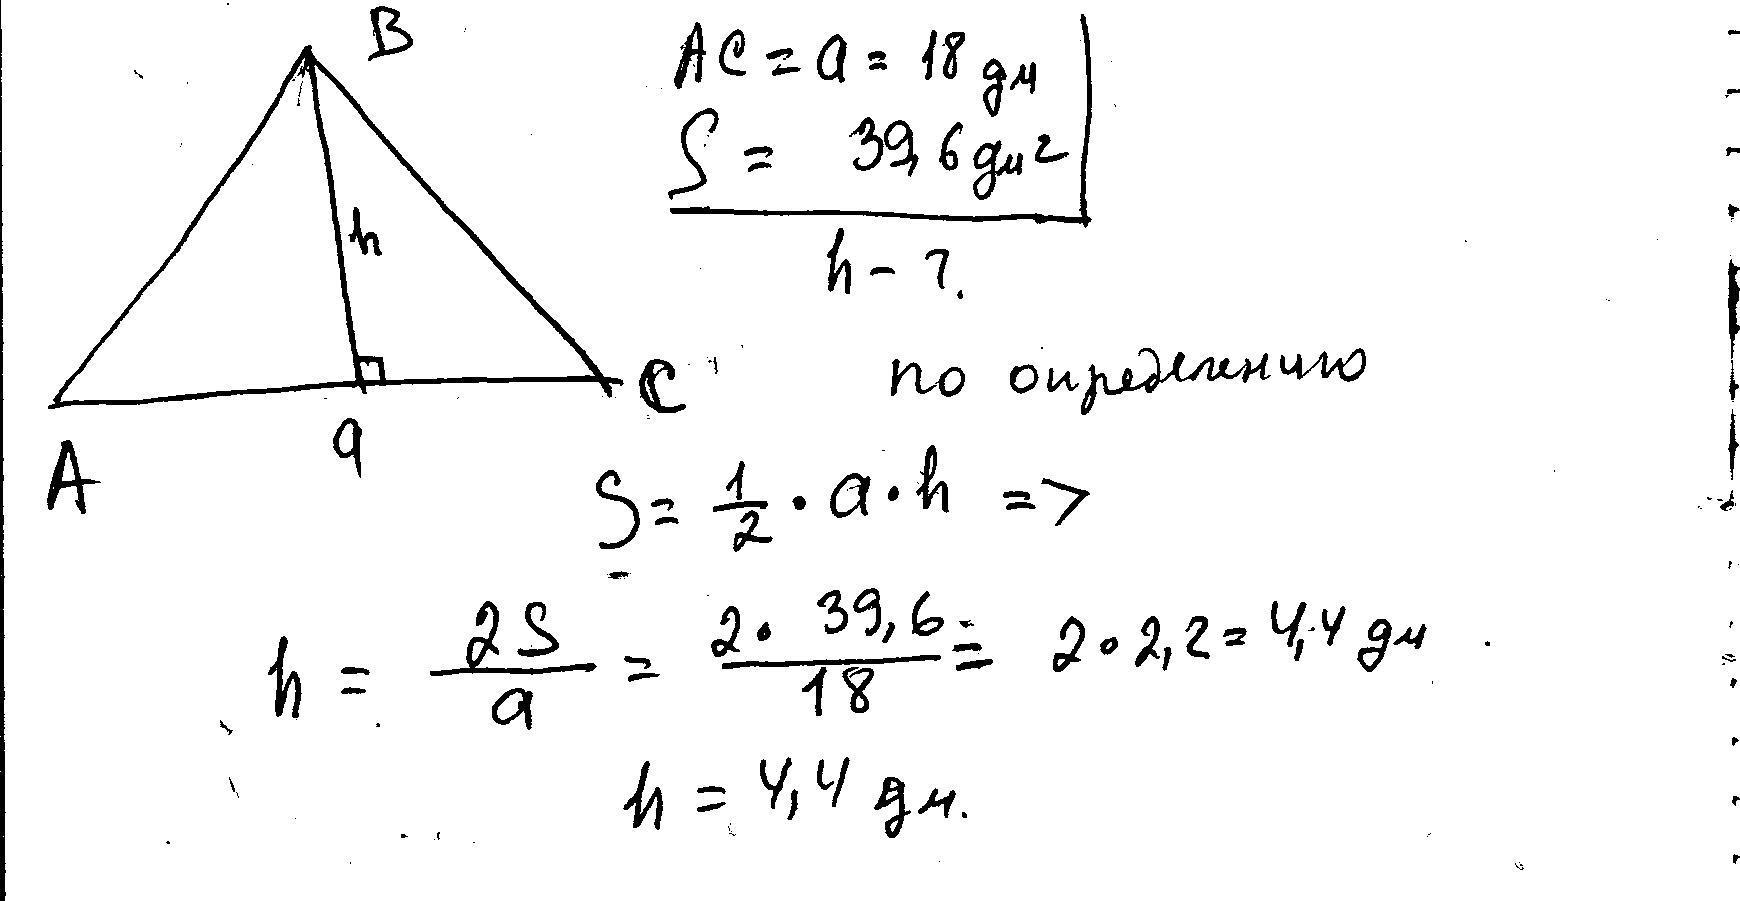 B
AC = a = 18 дм
S = 39,6 дм²
h
h - ?
C
по определению
a
A
S = 1/2 · a · h =>
h = 2S/a = 2 · 39,6/18 = 2 · 2,2 = 4,4 дм
h = 4,4 дм.